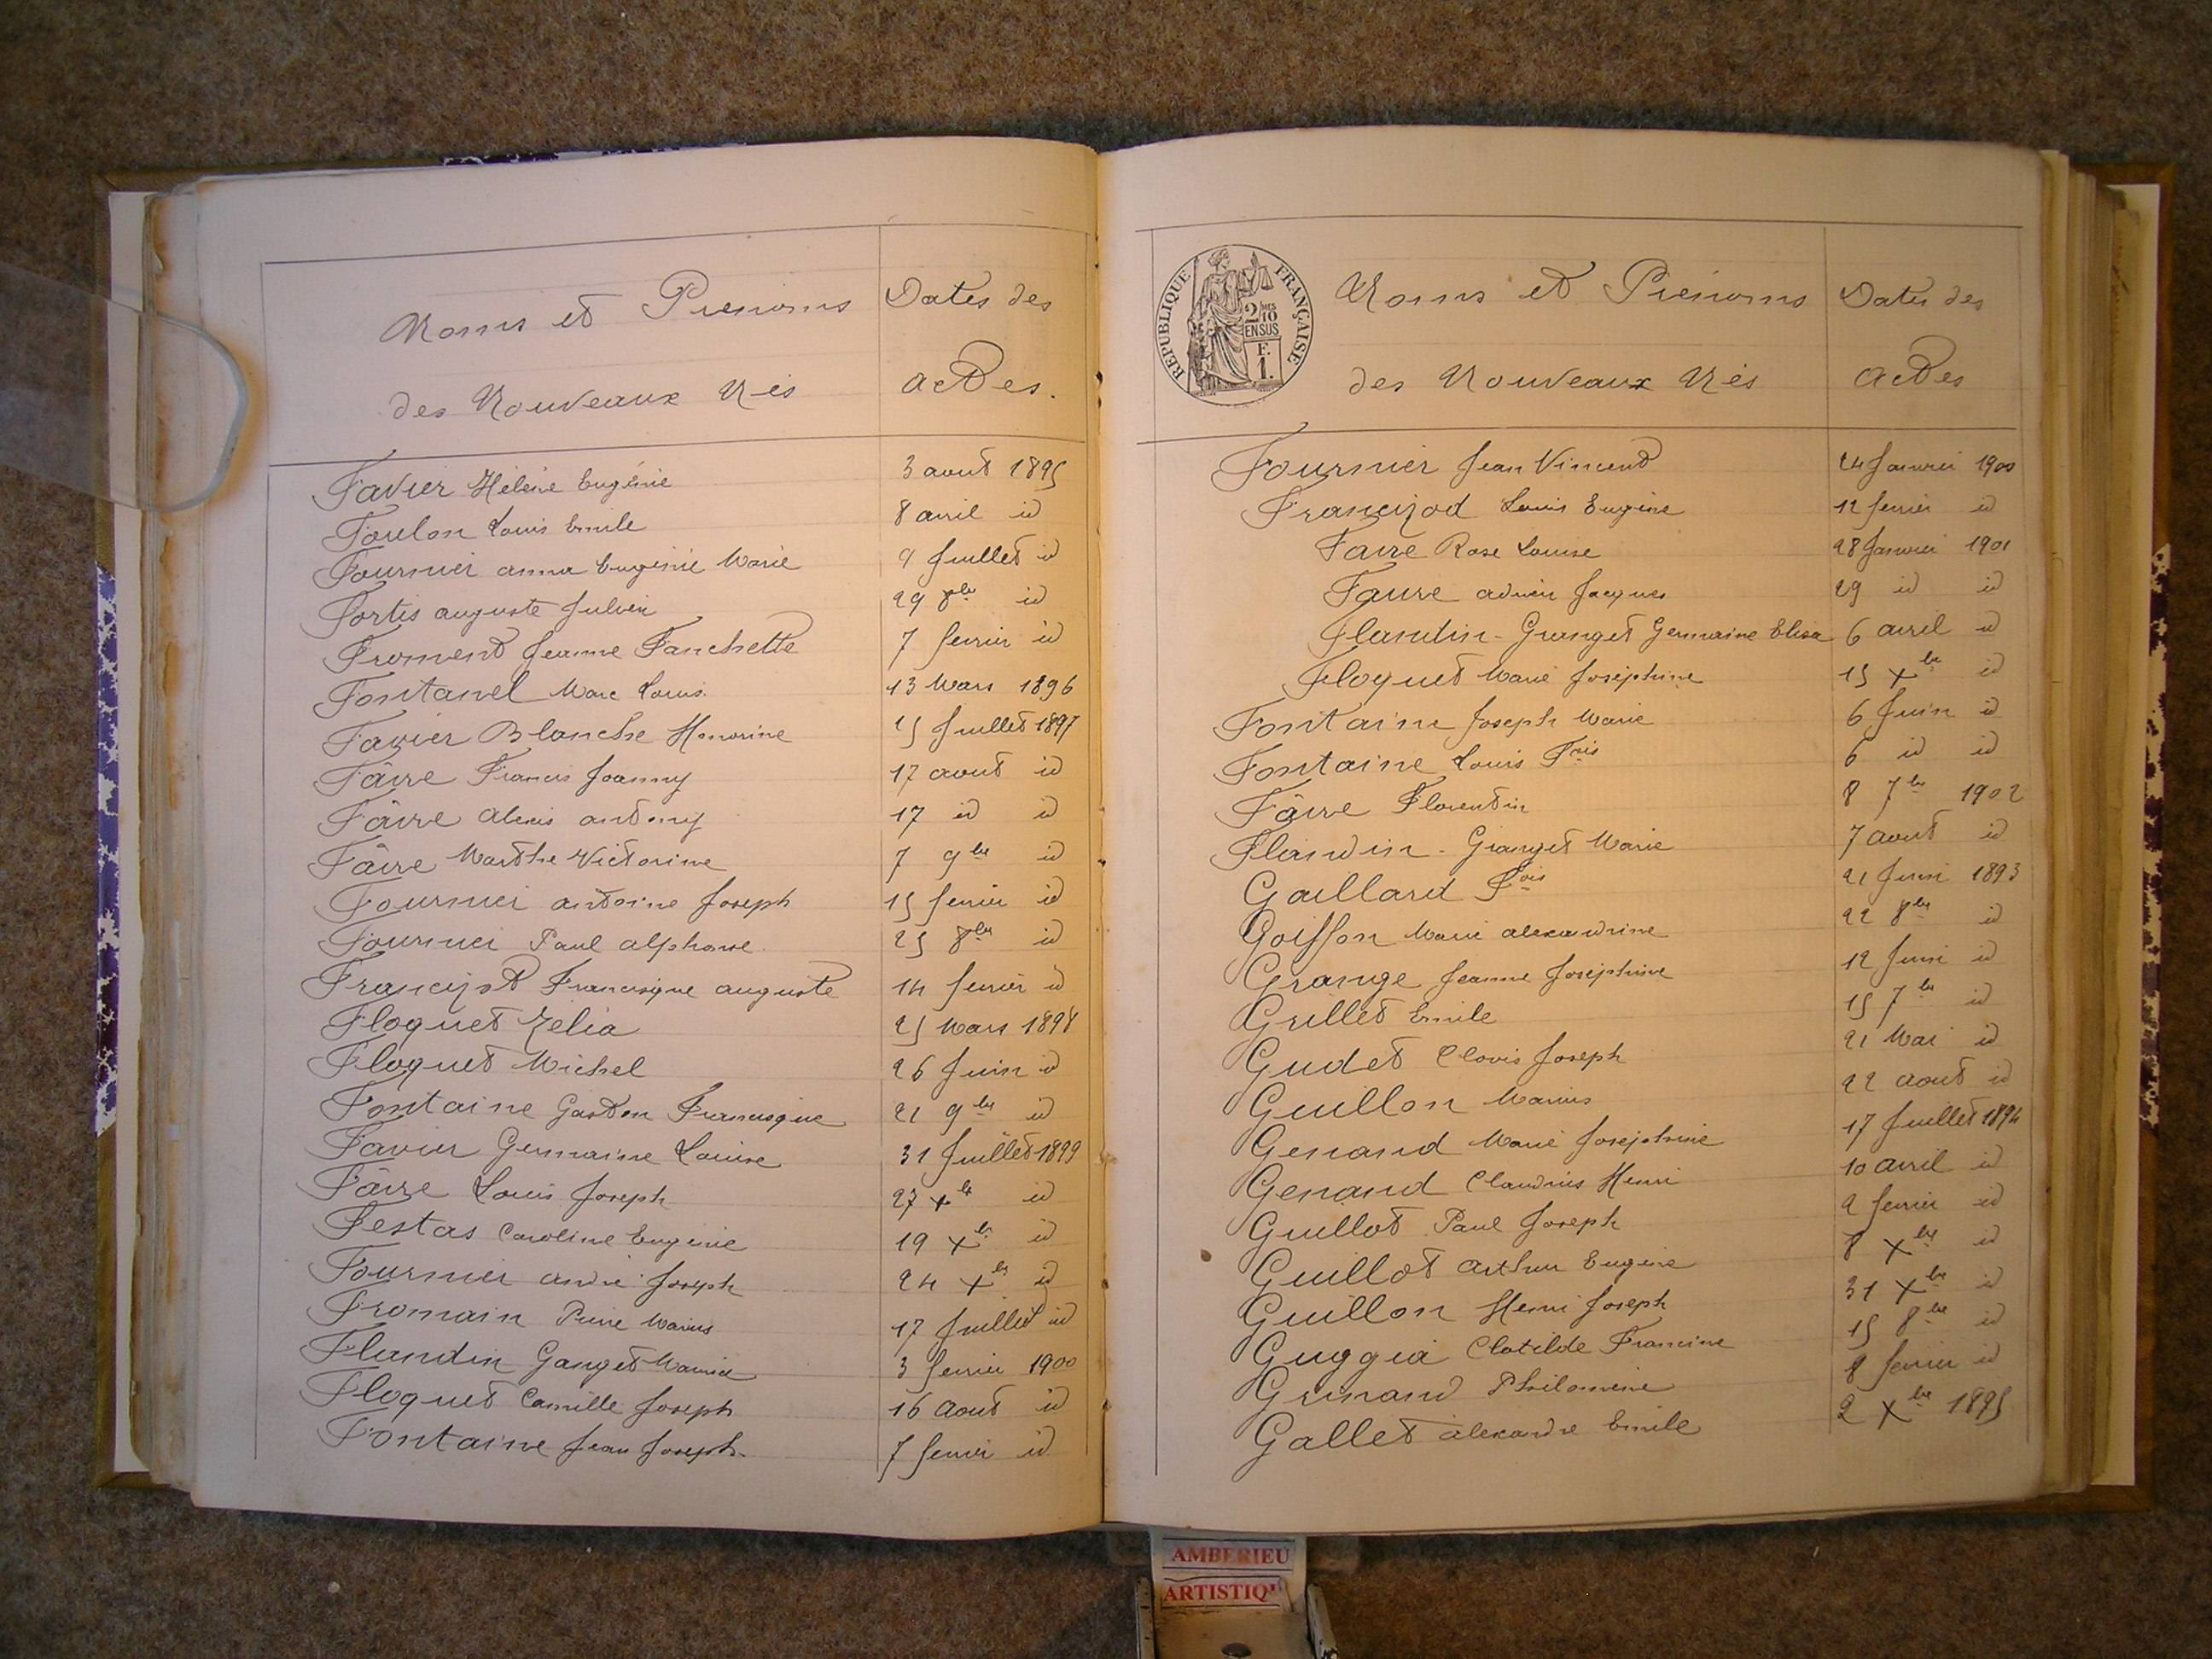 Noms et Prénoms
des Nouveaux Nés
Dates des
actes.
Favier Hélène Eugénie 3 aout 1895
Foulon Louis Emile 8 avril id
Fournier anna Eugénie Marie 9 Juillet id
Fortis auguste Julien 29 8bre id
Froment Jeanne Fanchette 7 fevrier id
Fontanel Marc Louis 13 Mars 1896
Favier Blanche Honorine 15 Juillet 1897
Fâvre Francis Joanny 17 aout id
Fâvre alexis antony 17 id id
Fâvre Marthe Victorine 7 9bre id
Fournier antoine Joseph 15 fevrier id
Fournier Paul alphonse 25 8bre id
Francijod Francisque auguste 14 fevrier id
Floquet Zelia 25 Mars 1898
Floquet Michel 26 Juin id
Fontaine Gaston Francisque 21 9bre id
Favier Germaine Louise 31 Juillet 1899
Fâvre Louis Joseph 27 Xbre id
Festas Caroline Eugénie 19 Xbre id
Fournier andré Joseph 24 Xbre id
Fromain Pierre Marius 17 Juillet id
Flandin Ganget 3 fevrier 1900
Floquet Camille Joseph 16 Aout id
Fontaine Jean Joseph 7 fevrier id
REPUBLIQUE FRANÇAISE
2/10 EN SUS
F. 1.
Noms et Prénoms
des Nouveaux Nés
Dates des
actes
Fournier Jean Vincent 24 Janvier 1900
Francijod Louis Eugène 12 fevrier id
Favre Rose Louise 28 Janvier 1901
Faure adrien Jacques 29 id id
Flandin-Granget Germaine Elisa 6 avril id
Floquet Marie Joséphine 15 Xbre id
Fontaine Joseph Marie 6 Juin id
Fontaine Louis Fois 6 id id
Fâvre Florentin 8 7bre 1902
Flandin-Granget Marie 7 aout id
Gaillard Fois 21 Juin 1893
Goiffon Marie alexandrine 22 8bre id
Grange Jeanne Joséphine 12 Juin id
Grillet Emile 15 7bre id
Gudet Clovis Joseph 21 Mai id
Guillon Marius 22 aout id
Genand Marie Joséphine 17 Juillet 1894
Genand Claudius Henri 10 avril id
Guillot Paul Joseph 2 fevrier id
Guillot Arthur Eugène 8 Xbre id
Guillon Henri Joseph 31 Xbre id
Guggia Clotilde Francine 15 8bre id
Grinand Philomène 8 fevrier id
Gallet alexandre Emile 2 Xbre 1895
AMBERIEU
ARTISTIQ